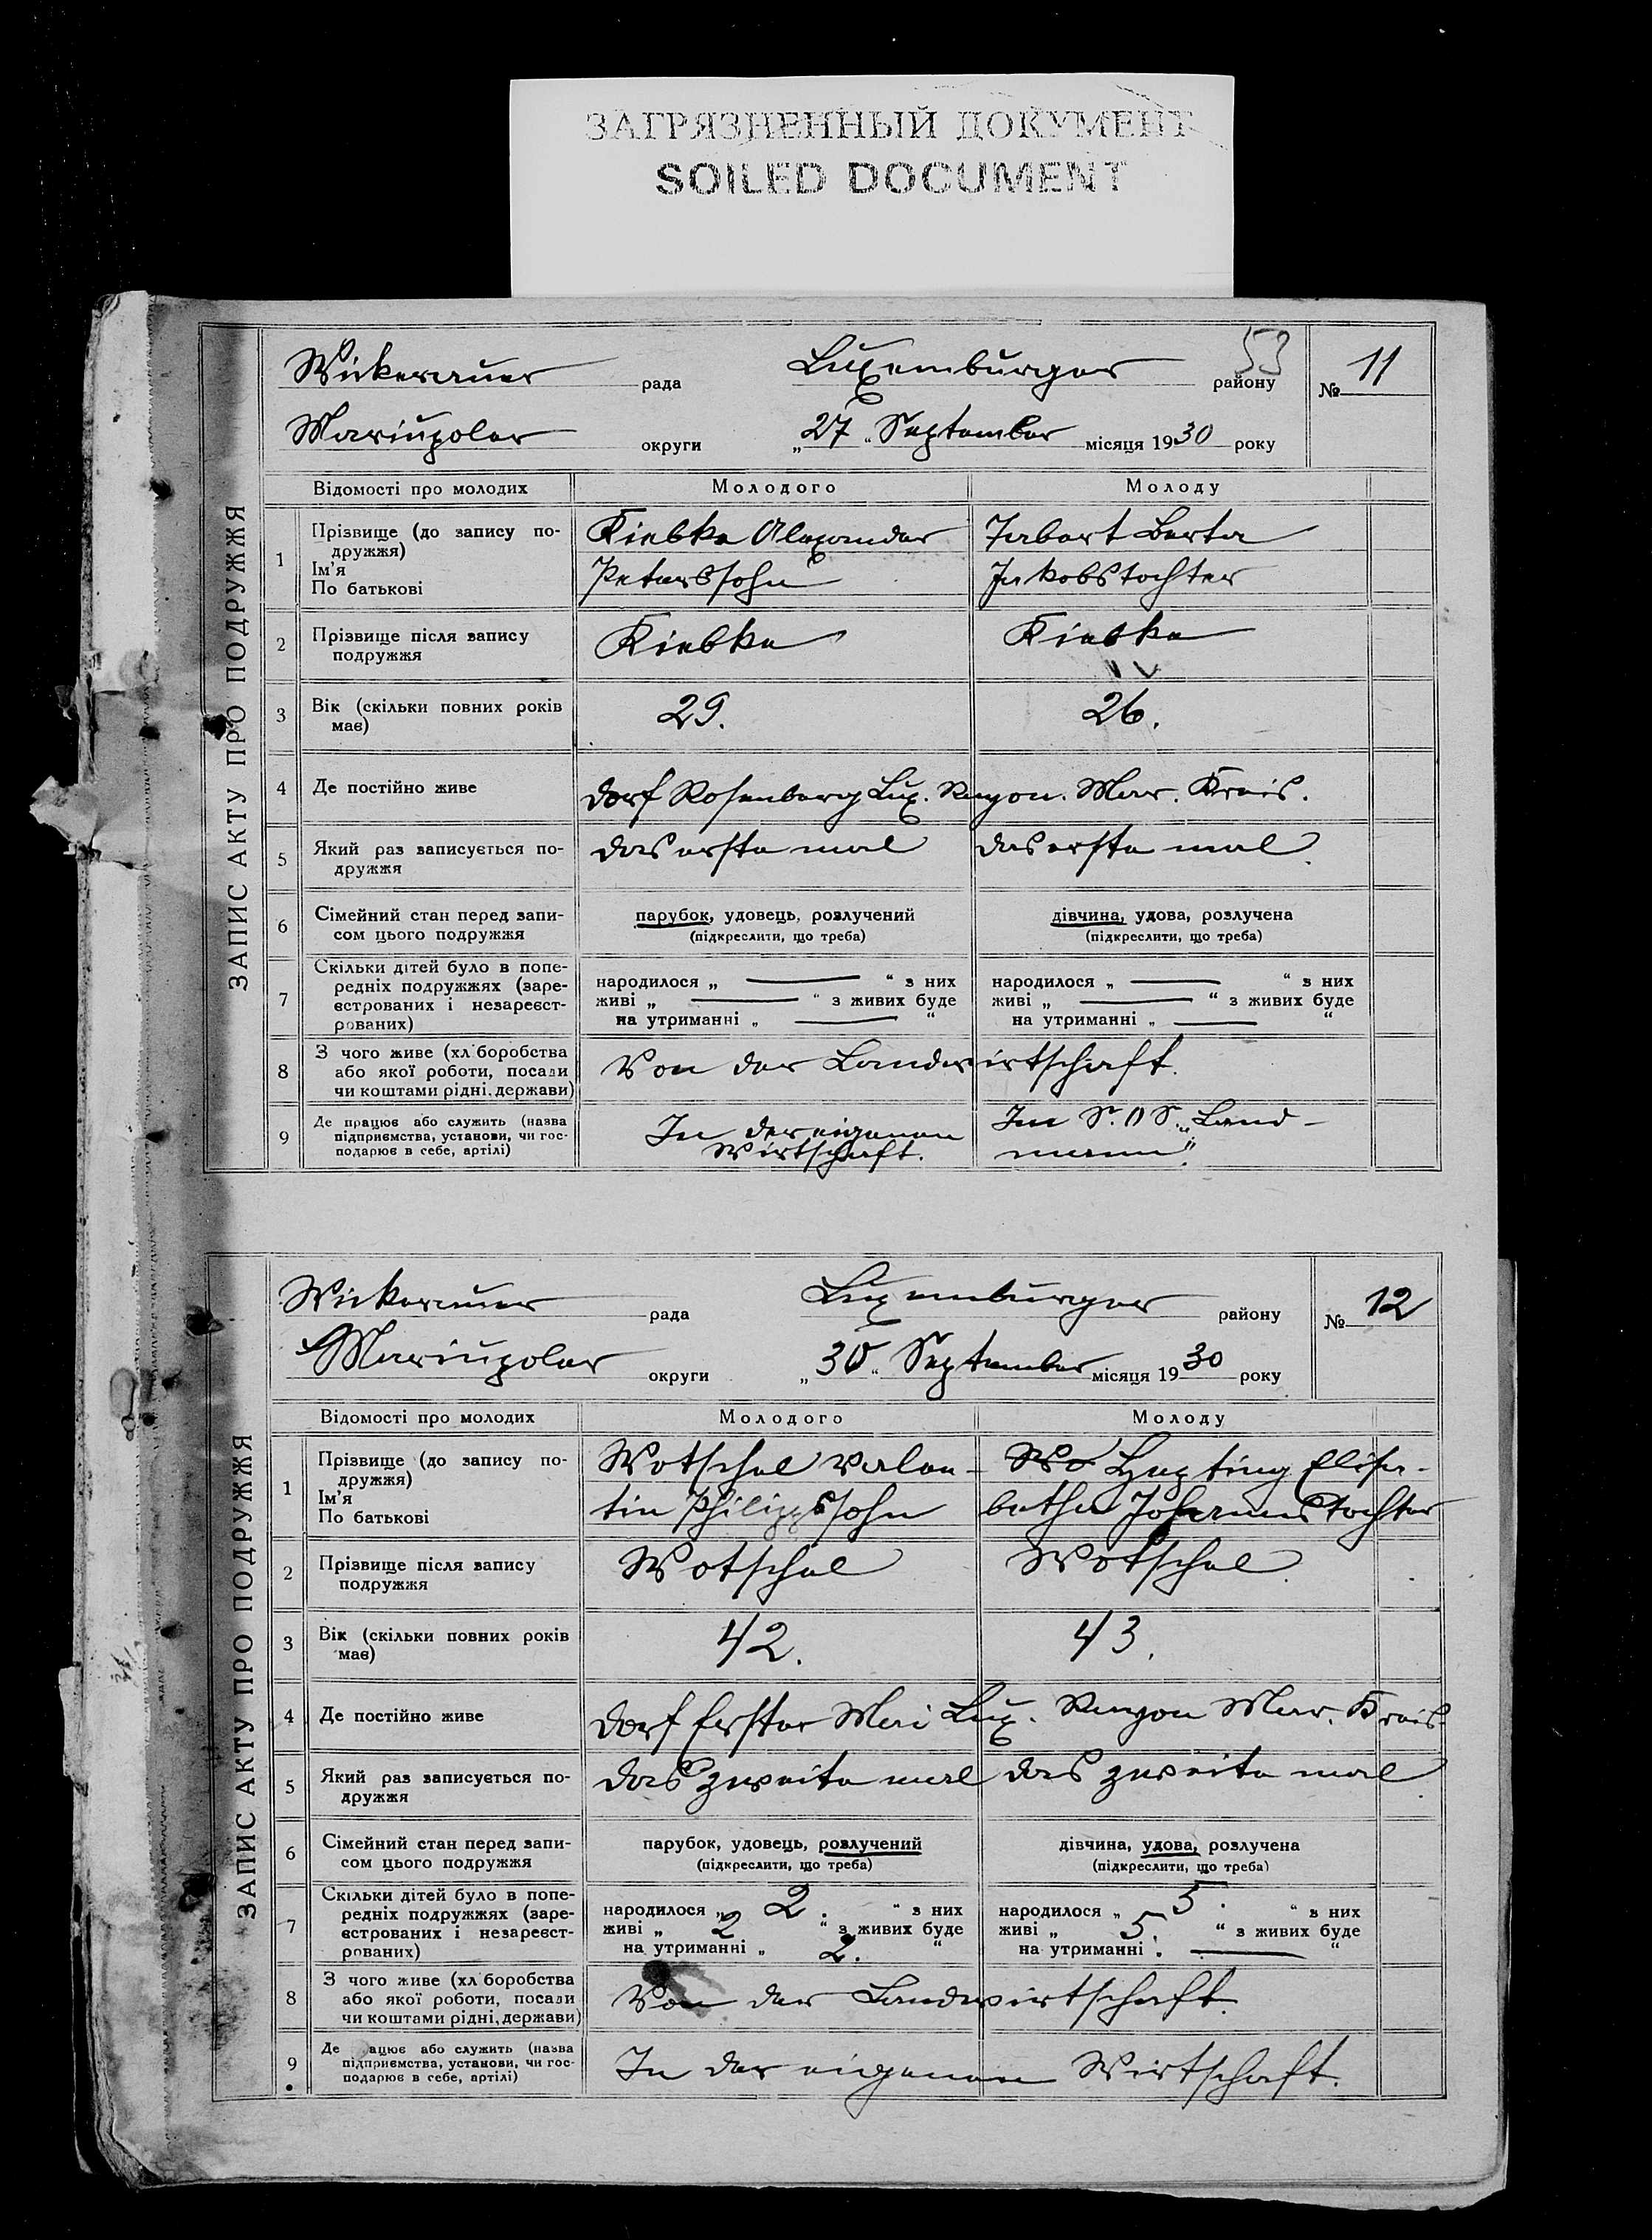 ЗАГРЯЗНЕННЫЙ ДОКУМЕНТ
SOILED DOCUMENT
53
ЗАПИС АКТУ ПРО ПОДРУЖЖЯ
Wickerauer рада Luxemburger району № 11
Mariupoler округи „27“ September місяця 1930 року
Відомості про молодих Молодого Молоду
1 Прізвище (до запису по-
дружжя)
Ім'я
По батькові
Kiebke Alexander
Peterssohn
Jabert Berta
Jakobstochter
2 Прізвище після запису
подружжя
Kiebke Kiebke
3 Вік (скільки повних років
має)
29. 26.
4 Де постійно живе
Dorf Rosenberg Lux. Rayon. Mar. Kreis.
5 Який раз записується по-
дружжя
das erste mal das erste mal.
6 Сімейний стан перед запи-
сом цього подружжя
парубок, удовець, розлучений
(підкреслити, що треба)
дівчина, удова, розлучена
(підкреслити, що треба)
7 Скільки дітей було в попе-
редніх подружжях (заре-
єстрованих і незареєст-
рованих)
народилося „ — “ з них
живі „ — “ з живих буде
на утриманні „ — “
народилося „ — “ з них
живі „ — “ з живих буде
на утриманні „ — “
8 З чого живе (хліборобства
або якої роботи, посади
чи коштами рідні, держави)
Von der Landwirtschaft.
9 Де працює або служить (назва
підприємства, установи, чи гос-
подарює в себе, артілі)
In der eigenen
Wirtschaft.
Im S.O.S. „Land-
mann“.
ЗАПИС АКТУ ПРО ПОДРУЖЖЯ
Wickerauer рада Luxemburger району № 12
Mariupoler округи „30“ September місяця 1930 року
Відомості про молодих Молодого Молоду
1 Прізвище (до запису по-
дружжя)
Ім'я
По батькові
Wotschel Valen-
tin Philippssohn
Hapting Elisa-
betha Johannestochter
2 Прізвище після запису
подружжя
Wotschel Wotschel.
3 Вік (скільки повних років
має)
42. 43.
4 Де постійно живе
Dorf Erster Mai Lux. Rayon Mar. Kreis
5 Який раз записується по-
дружжя
das zweite mal das zweite mal.
6 Сімейний стан перед запи-
сом цього подружжя
парубок, удовець, розлучений
(підкреслити, що треба)
дівчина, удова, розлучена
(підкреслити, що треба)
7 Скільки дітей було в попе-
редніх подружжях (заре-
єстрованих і незареєст-
рованих)
народилося „ 2. “ з них
живі „ 2 “ з живих буде
на утриманні „ 2. “
народилося „ 5. “ з них
живі „ 5. “ з живих буде
на утриманні „ — “
8 З чого живе (хліборобства
або якої роботи, посади
чи коштами рідні, держави)
Von der Landwirtschaft.
9 Де працює або служить (назва
підприємства, установи, чи гос-
подарює в себе, артілі)
In der eigenen Wirtschaft.